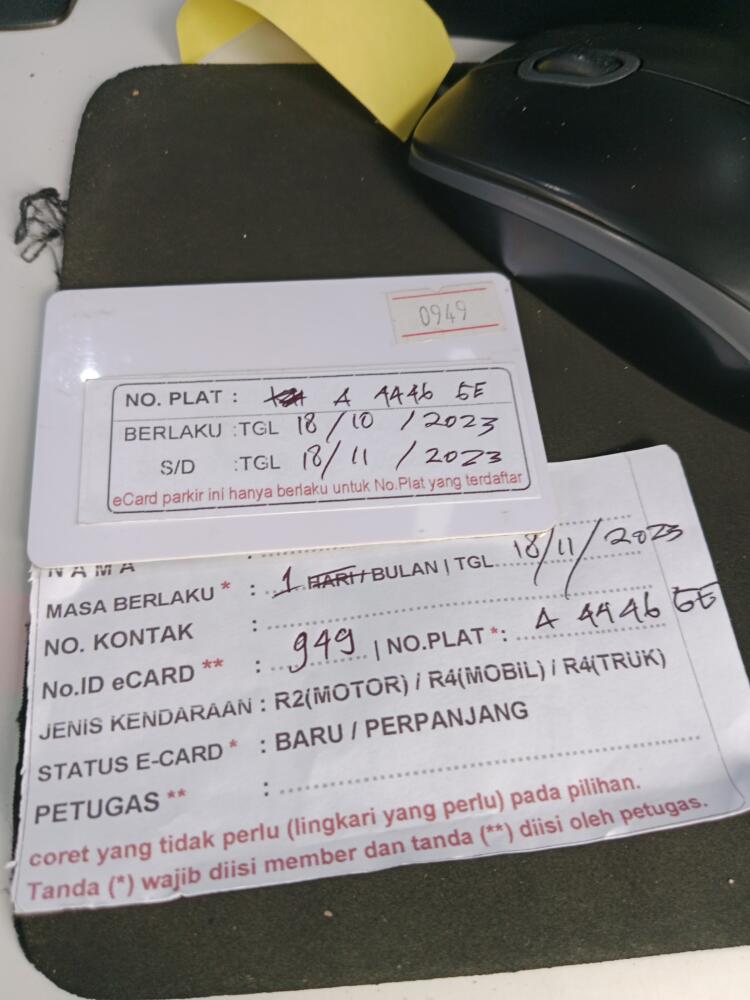 0949
NO. PLAT : A 4446 EE
BERLAKU :TGL 18/10/2023
S/D :TGL 18/11/2023
eCard parkir ini hanya berlaku untuk No.Plat yang terdaftar
NAMA
MASA BERLAKU * : 1 HARI / BULAN | TGL 18/11/2023
NO. KONTAK :
No.ID eCARD ** : 949 | NO.PLAT *: A 4446 EE
JENIS KENDARAAN : R2(MOTOR) / R4(MOBIL) / R4(TRUK)
STATUS E-CARD * : BARU / PERPANJANG
PETUGAS ** :
coret yang tidak perlu (lingkari yang perlu) pada pilihan.
Tanda (*) wajib diisi member dan tanda (**) diisi oleh petugas.